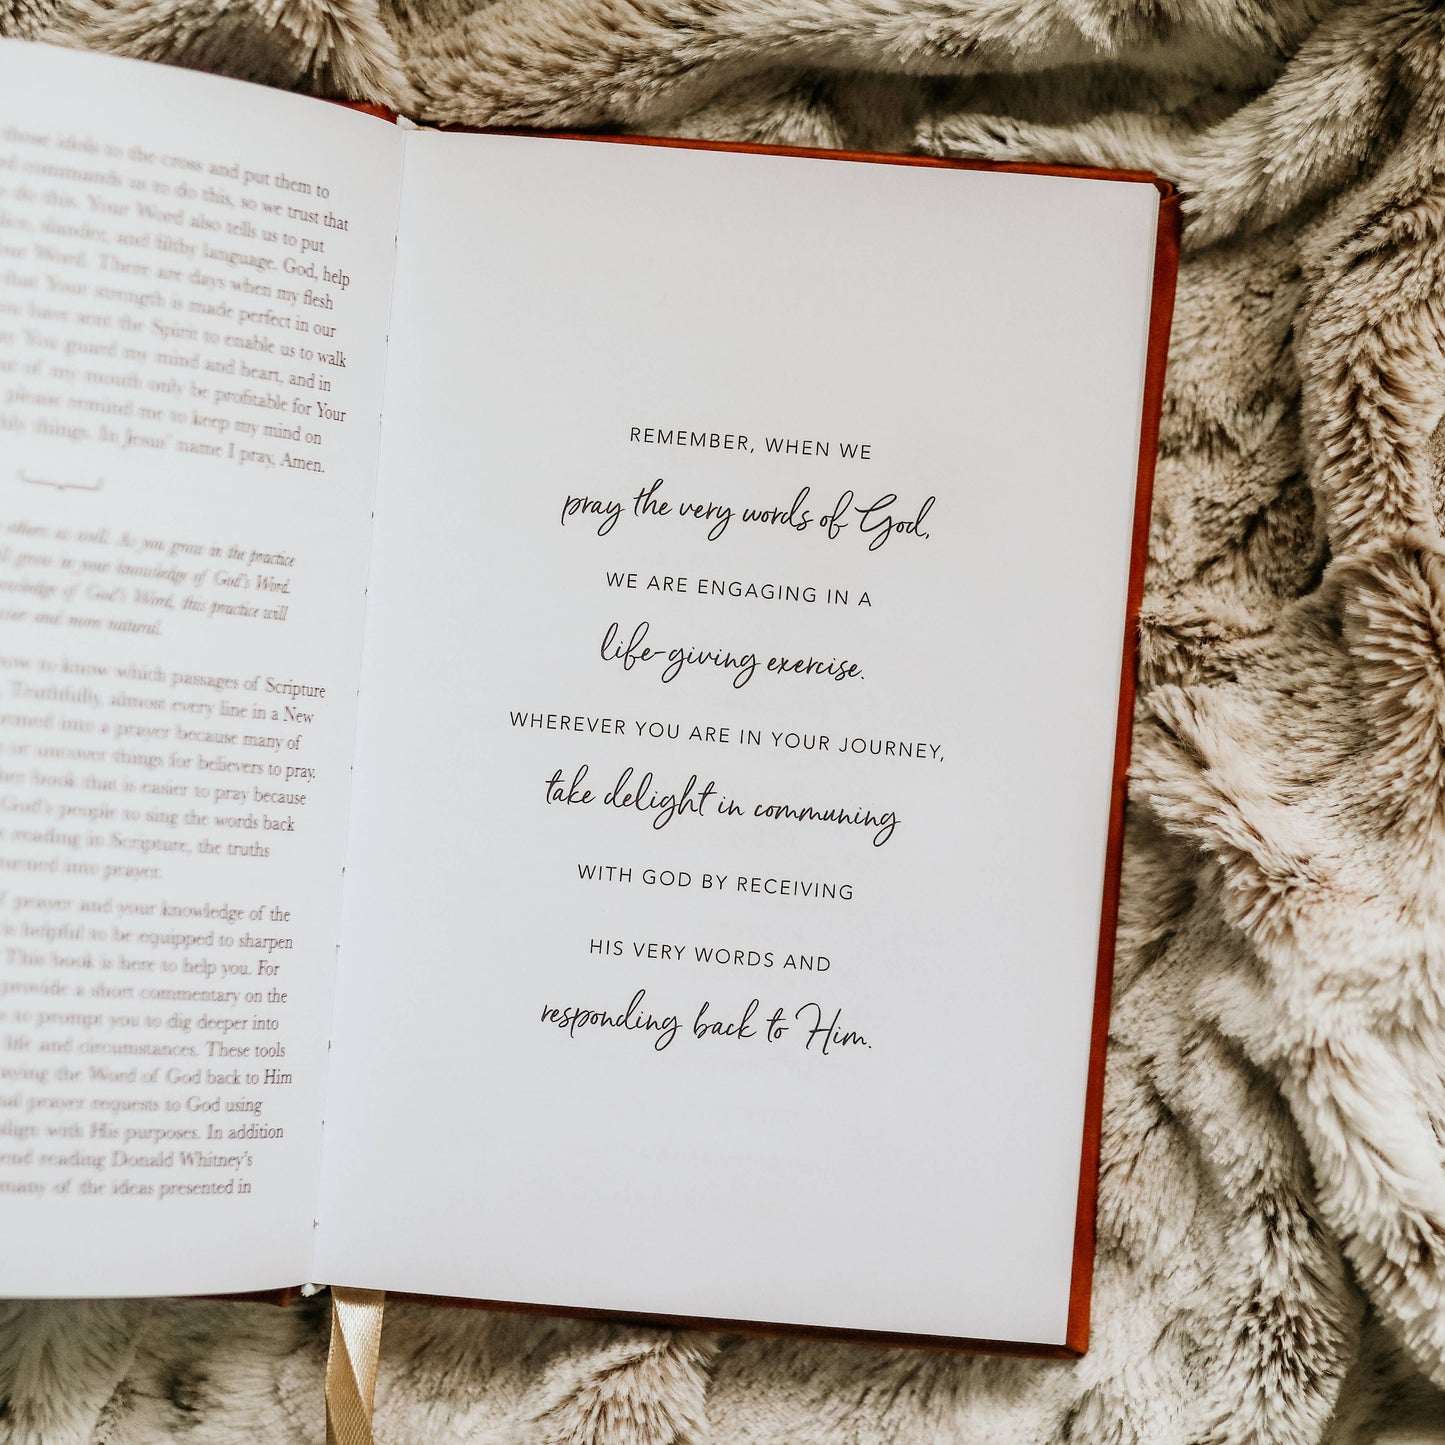 those idols to the cross and put them to
commands us to do this, so we trust that
do this. Your Word also tells us to put
slander, and filthy language. God, help
your Word. There are days when my flesh
that Your strength is made perfect in our
have sent the Spirit to enable us to walk
You guard my mind and heart, and in
out of my mouth only be profitable for Your
please remind me to keep my mind on
things. In Jesus' name I pray, Amen.
others as well. As you grow in the practice
grow in your knowledge of God's Word.
knowledge of God's Word, this practice will
and more natural.
how to know which passages of Scripture
Truthfully, almost every line in a New
turned into a prayer because many of
or uncover things for believers to pray.
book that is easier to pray because
God's people to sing the words back
reading in Scripture, the truths
turned into prayer.
of prayer and your knowledge of the
is helpful to be equipped to sharpen
This book is here to help you. For
provide a short commentary on the
to prompt you to dig deeper into
life and circumstances. These tools
praying the Word of God back to Him
prayer requests to God using
align with His purposes. In addition
reading Donald Whitney's
many of the ideas presented in
REMEMBER, WHEN WE
pray the very words of God,
WE ARE ENGAGING IN A
life-giving exercise.
WHEREVER YOU ARE IN YOUR JOURNEY,
take delight in communing
WITH GOD BY RECEIVING
HIS VERY WORDS AND
responding back to Him.